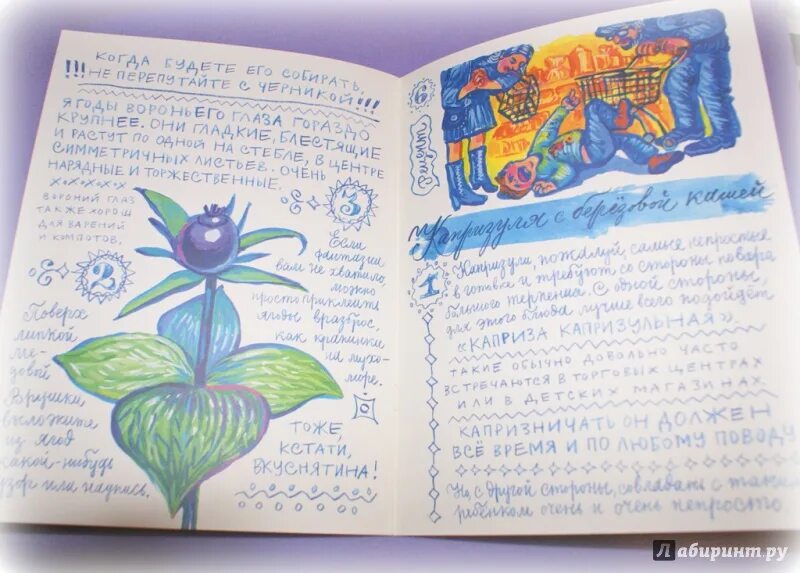 !!! КОГДА БУДЕТЕ ЕГО СОБИРАТЬ,
НЕ ПЕРЕПУТАЙТЕ С ЧЕРНИКОЙ!!!
ЯГОДЫ ВОРОНЬЕГО ГЛАЗА ГОРАЗДО
КРУПНЕЕ. ОНИ ГЛАДКИЕ, БЛЕСТЯЩИЕ
И РАСТУТ ПО ОДНОЙ НА СТЕБЛЕ, В ЦЕНТРЕ
СИММЕТРИЧНЫХ ЛИСТЬЕВ. ОЧЕНЬ
НАРЯДНЫЕ И ТОРЖЕСТВЕННЫЕ.
ВОРОНИЙ ГЛАЗ
ТАКЖЕ ХОРОШ
ДЛЯ ВАРЕНИЙ
И КОМПОТОВ.
2
Поверх
липкой
ме-
довой
ватрушки
выложите
из ягод
какой-нибудь
узор или надпись.
3
Если
фантазии
вам не хватило,
можно
просто приклеить
ягоды вразброс,
как крапинки
на мухо-
море.
ТОЖЕ,
КСТАТИ,
ВКУСНЯТИНА!
Рецепт
Капризуля с берёзовой кашей
1
Капризули, пожалуй, самые непростые
в готовке и требуют со стороны повара
большого терпения. С одной стороны,
для этого блюда лучше всего подойдёт
"КАПРИЗА КАПРИЗУЛЬНАЯ".
ТАКИЕ ОБЫЧНО ДОВОЛЬНО ЧАСТО
ВСТРЕЧАЮТСЯ В ТОРГОВЫХ ЦЕНТРАХ
ИЛИ В ДЕТСКИХ МАГАЗИНАХ
КАПРИЗНИЧАТЬ ОН ДОЛЖЕН
ВСЁ ВРЕМЯ И ПО ЛЮБОМУ ПОВОДУ
Но, с другой стороны, совладать с таким
ребёнком очень и очень непросто
Лабиринт.ру